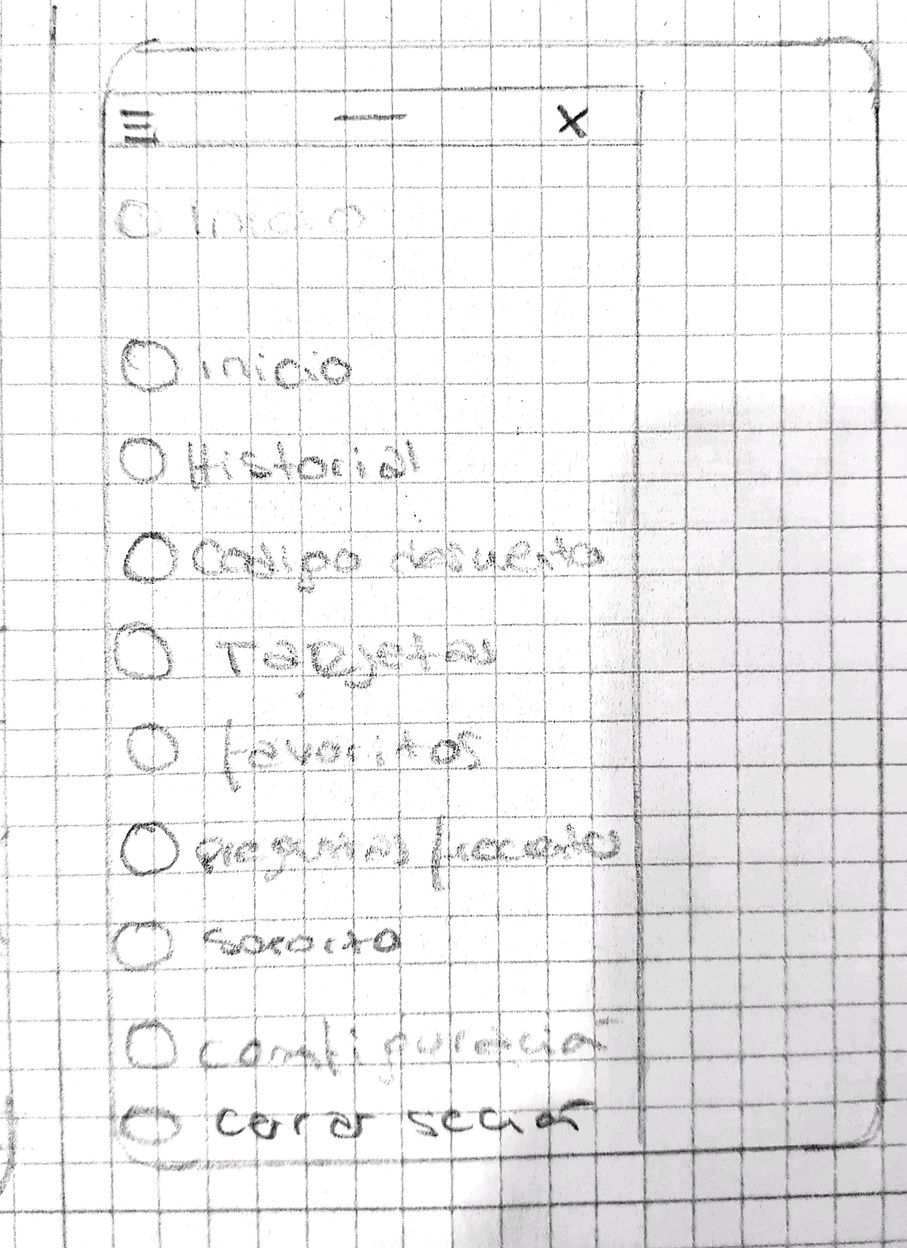 Inicio
inicio
Historial
Codigo desuento
Tarjetas
favoritos
preguntas
configuración
cerrar seción